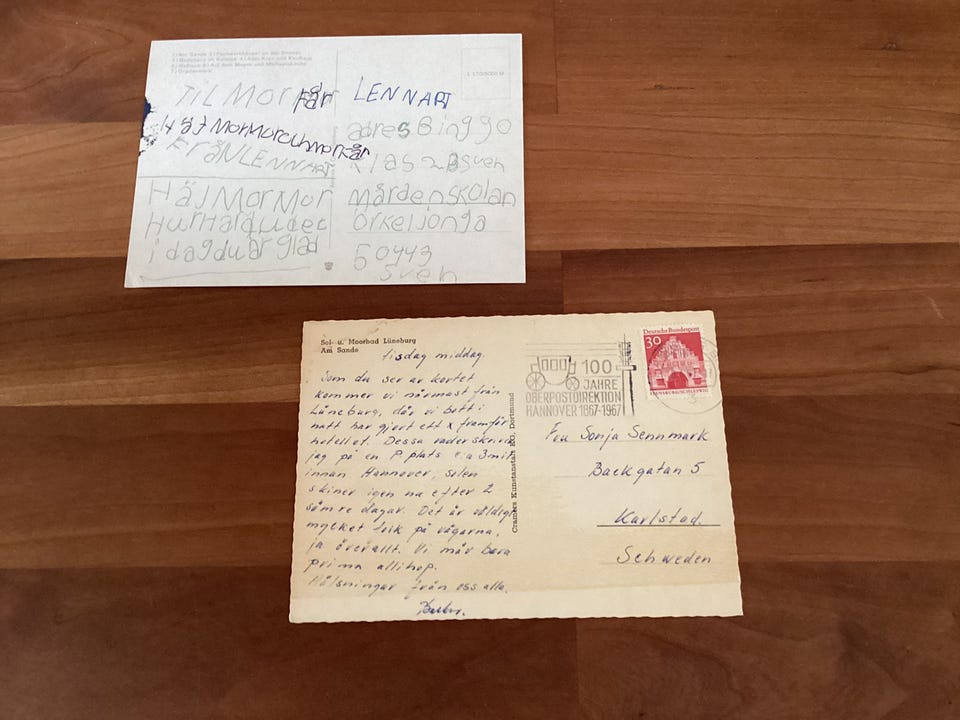 TiL MorMor får
Häj MorMor ch morfår
FråN LENNART
HäJ MorMor
HurHarduded
i dag duär glad
LENNART
adres Binggo
Klas 2B Sven
Mårdenskolan
örkeljonga
50443
Sven
Sol- u. Moorbad Lüneburg
Am Sande
Tisdag middag.
Som du ser av kortet
kommer vi närmast från
Lüneburg, där vi bott i
natt har gjort ett x framför
hotellet. Dessa rader skriver
jag på en P.plats c:a 3 mil
innan Hannover, solen
skiner igen nu efter 2
sämre dagar. Det är väldigt
mycket folk på vägarna,
ja överallt. Vi mår bara
prima allihop.
Hälsningar från oss alla.
Cramers Kunstanstalt KG, Dortmund
100
JAHRE
OBERPOSTDIREKTION
HANNOVER 1867-1967
Deutsche Bundespost
30
FLENSBURG/SCHLESWIG
Fru Sonja Sennmark
Backgatan 5
Karlstad.
Schweden